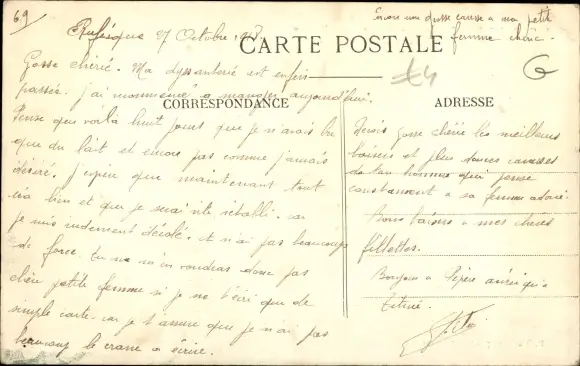 69
Rufisque 27 Octobre
Encore une grosse caresse a ma petit
femme chérie
CARTE POSTALE
£4
G
Gosse chérie. Ma dyssenterie est enfin
passée. j'ai recommencé a manger aujourd'hui.
CORRESPONDANCE
ADRESSE
Pense que voilà huit jours que je n'avais bu
que du lait et encore pas comme j'aurais
désiré. J'espère que maintenant tout
ira bien et que je serai vite rétabli. car
je suis rudement décollé. et n'ai pas beaucoup
de force. Tu ne m'en voudras donc pas
chère petite femme si je ne t'écris que de
simple carte. car je t'assure que je n'ai pas
beaucoup le crane a écrire.
Reçois Gosse chérie les meilleurs
baisers et plus douces caresses
de ton homme qui pense
constamment a sa femme adorée.
Bons baisers a mes chères
fillettes.
Bonjour a Pépère ainsi qu'a
Titine.